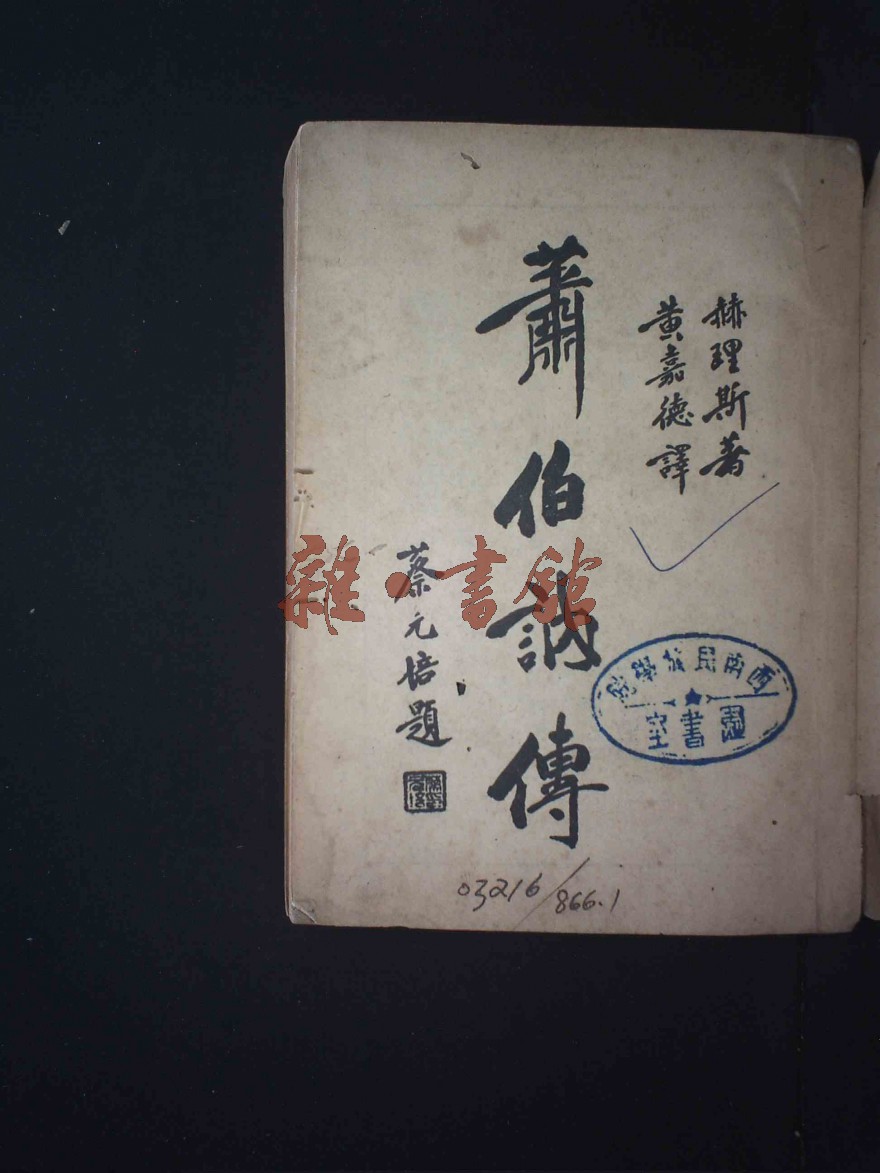 赫理斯著
黃嘉德譯
蕭伯訥傳
蔡元培題
雜·書館
西南民族學院
圖書室
03216/866.1